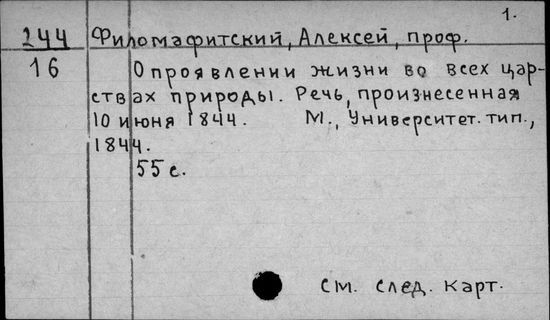 1.
244 Филомафитский, Алексей, проф.
16 О проявлении жизни во всех цар-
ствах природы. Речь, произнесенная
10 июня 1844. М., Университет. тип.,
1844.
55 с.
см. след. карт.